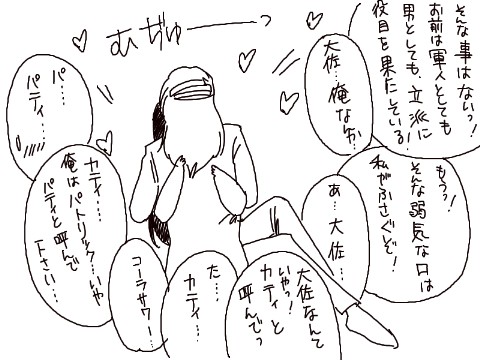 そんな事はないっ!
お前は軍人としても
男としても、立派に
役目を果たしている!
大佐…俺なんか…
もうっ!
そんな弱気な口は
私がふさぐぞ!
むぢゅーーーっ
あ…大佐…
大佐なんて
いやっ!
カティと
呼んでっ
た……
カティ……
コーラサワー…
カティ……
俺はパトリック…いや
パティと呼んで
下さい…
パ……
パティ……